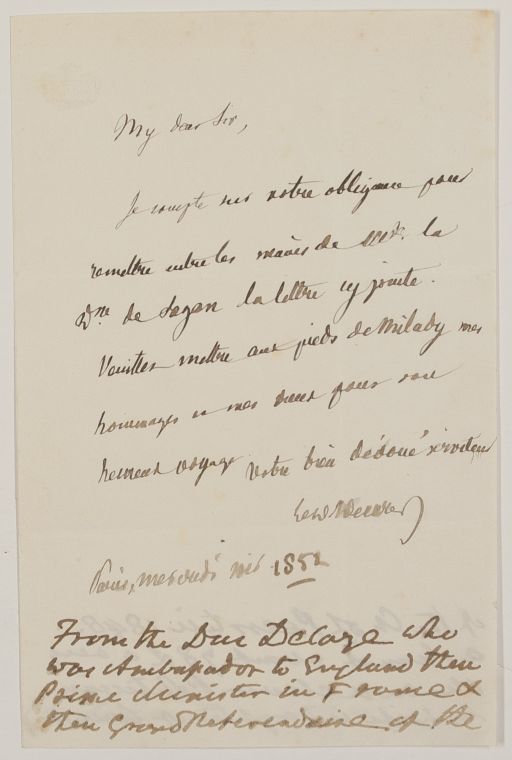 My dear Sir,
Je compte sur votre obligeance pour
remettre entre les mains de Mde. la
Dsse de Sagan la lettre cy jointe.
Veuillez mettre aux pieds de Milady mes
hommages et mes vœux pour son
heureux voyage
votre bien dévoué serviteur
Paris, mercredi soir 1852
From the Duc Decaze who
was Ambassador to England then
Prime Minister in France &
then Grand Referendaire of the